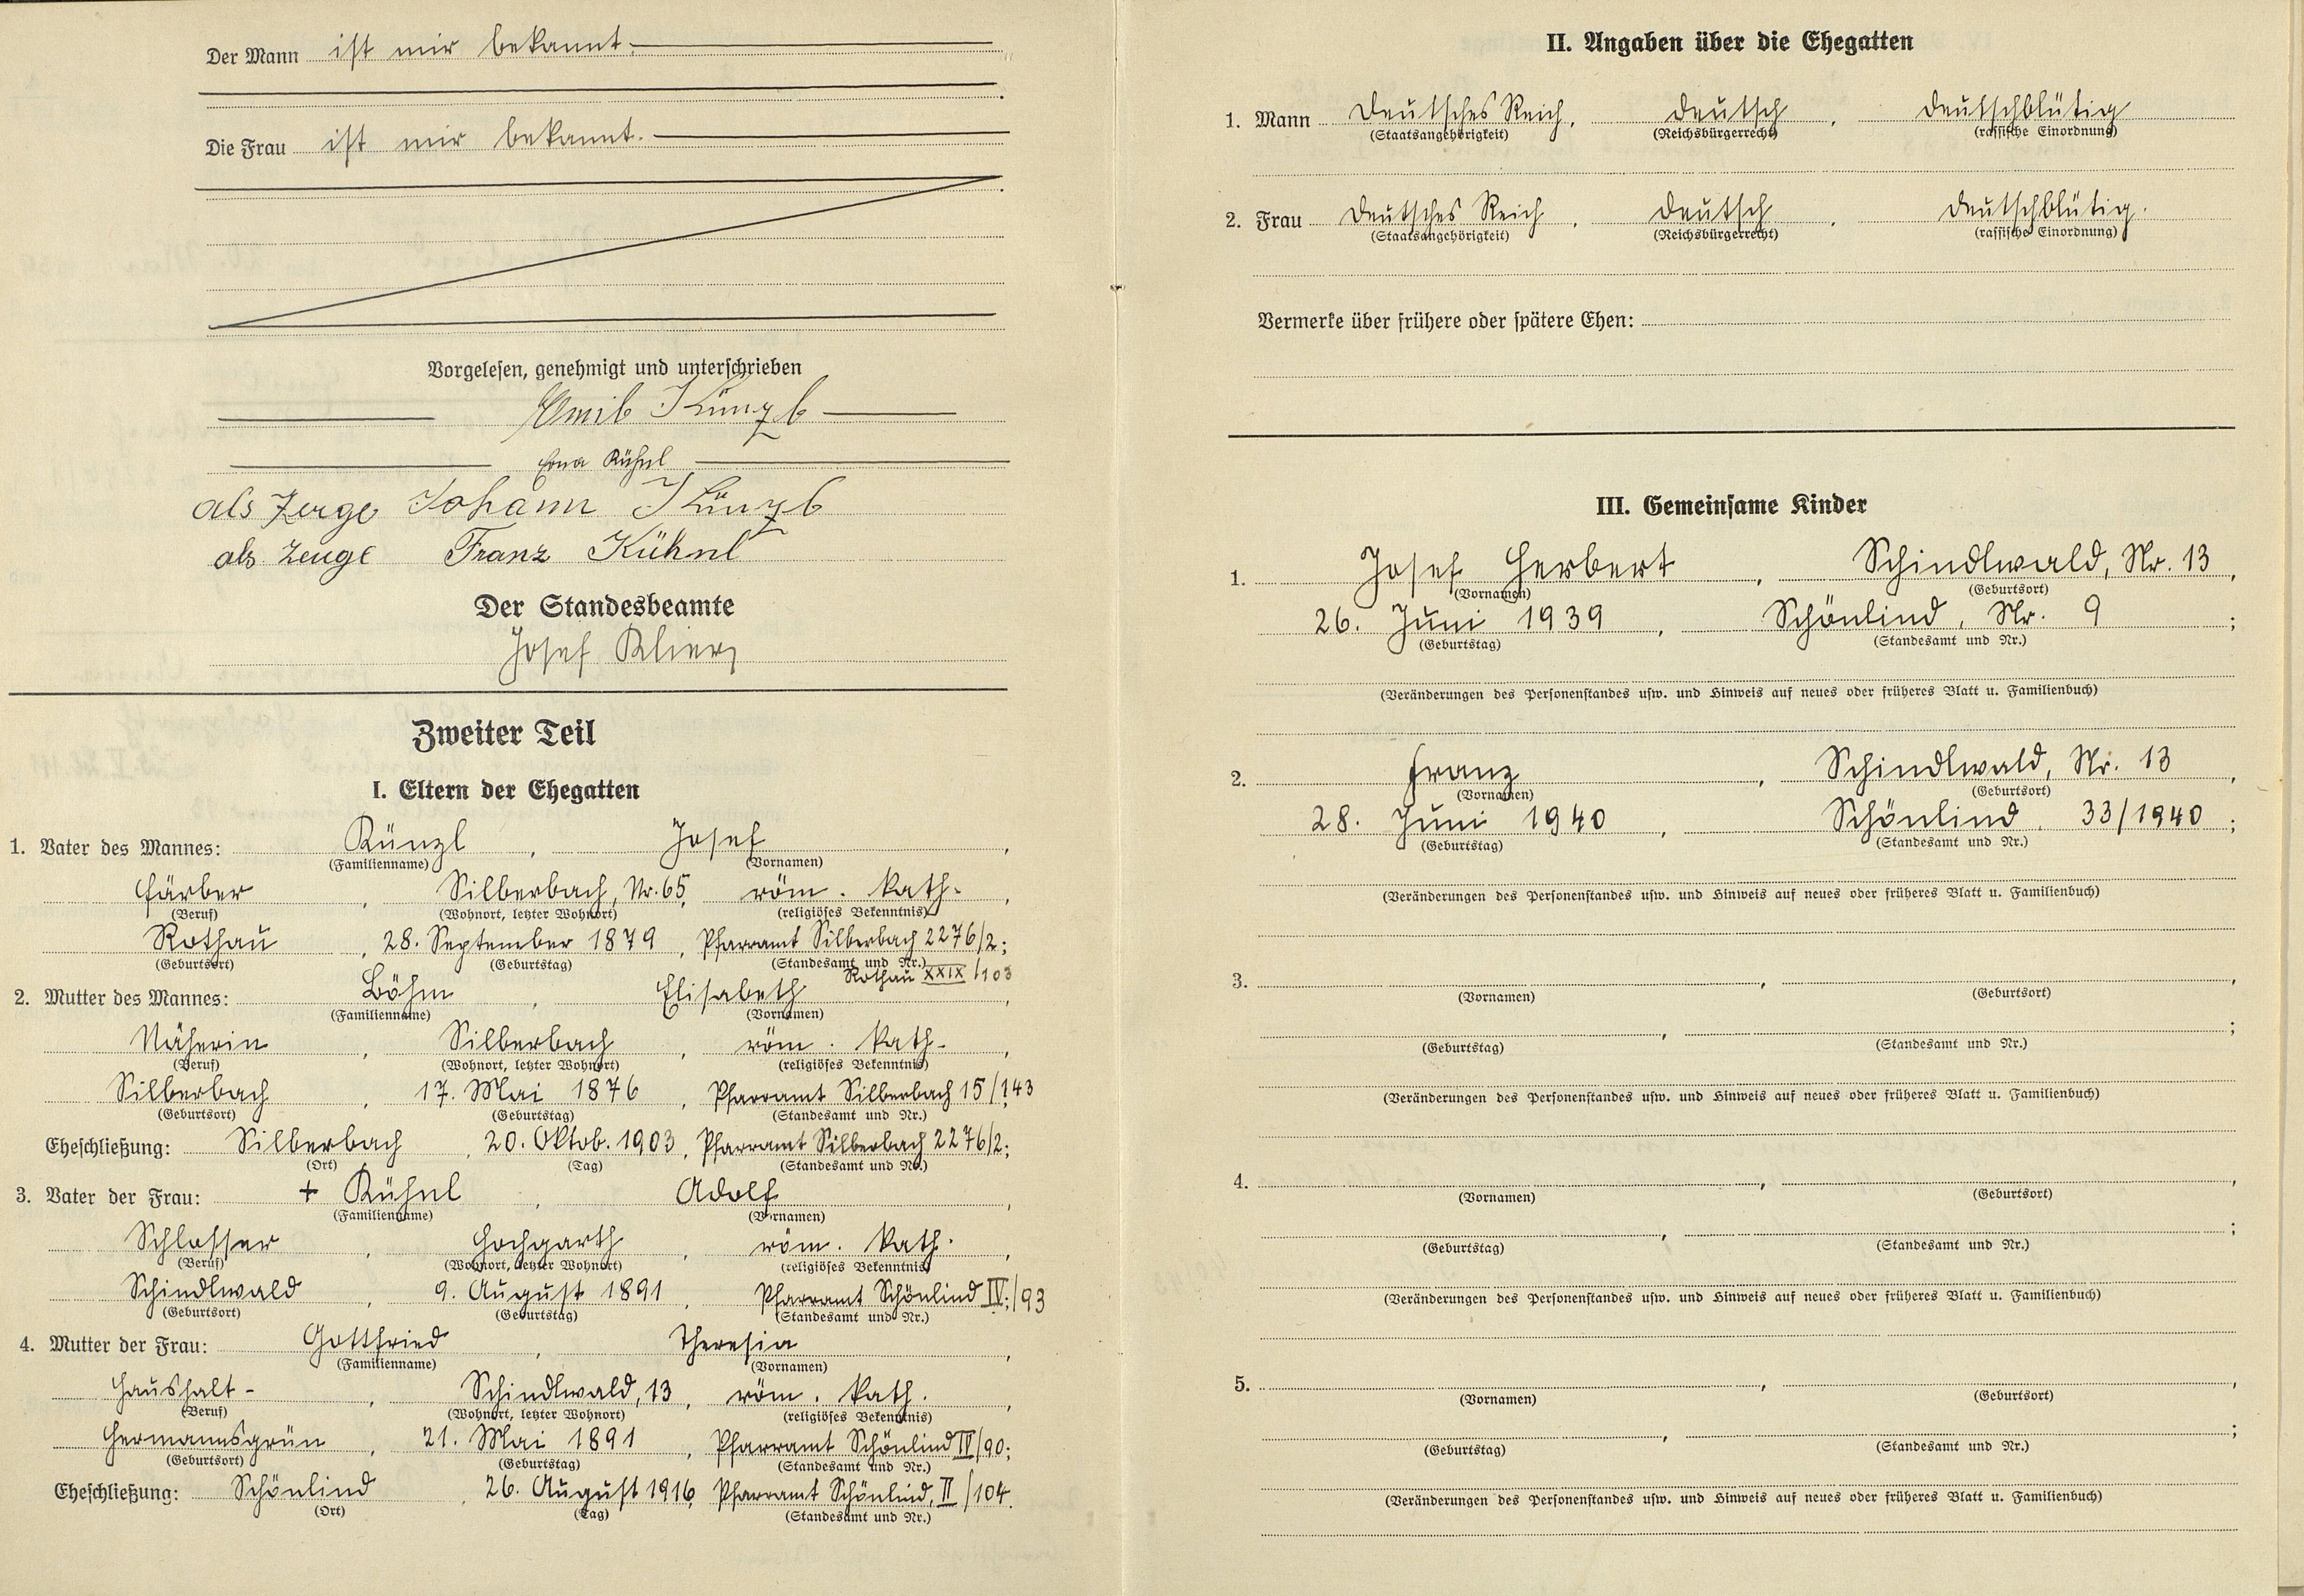 Der Mann ist mir bekannt.
Die Frau ist mir bekannt.
Vorgelesen, genehmigt und unterschrieben
Emil Künzl
Erna Kühnl
als Zeuge Johann Künzl
als Zeuge Franz Kühnl
Der Standesbeamte
Josef Klier
Zweiter Teil
I. Eltern der Ehegatten
1. Vater des Mannes: Künzl, Josef,
(Familienname) (Vornamen)
Färber, Silberbach, Nr. 65, röm. kath.,
(Beruf) (Wohnort, letzter Wohnort) (religiöses Bekenntnis)
Rothau, 28. September 1879, Pfarramt Silberbach 2276/2;
(Geburtsort) (Geburtstag) (Standesamt und Nr.)
Rothau XXIX/103
2. Mutter des Mannes: Böhm, Elisabeth,
(Familienname) (Vornamen)
Näherin, Silberbach, röm. kath.,
(Beruf) (Wohnort, letzter Wohnort) (religiöses Bekenntnis)
Silberbach, 17. Mai 1876, Pfarramt Silberbach 15/143
(Geburtsort) (Geburtstag) (Standesamt und Nr.)
Eheschließung: Silberbach, 20. Oktob. 1903, Pfarramt Silberbach 2276/2;
(Ort) (Tag) (Standesamt und Nr.)
3. Vater der Frau: + Kühnl, Adolf,
(Familienname) (Vornamen)
Schlosser, Hochgarth, röm. kath.,
(Beruf) (Wohnort, letzter Wohnort) (religiöses Bekenntnis)
Schindlwald, 9. August 1891, Pfarramt Schönlind IV;/93
(Geburtsort) (Geburtstag) (Standesamt und Nr.)
4. Mutter der Frau: Gottfried, Theresia,
(Familienname) (Vornamen)
Haushalt-, Schindlwald, 13, röm. kath.,
(Beruf) (Wohnort, letzter Wohnort) (religiöses Bekenntnis)
Hermannsgrün, 21. Mai 1891, Pfarramt Schönlind IV/90;
(Geburtsort) (Geburtstag) (Standesamt und Nr.)
Eheschließung: Schönlind, 26. August 1916, Pfarramt Schönlind, II/104.
(Ort) (Tag) (Standesamt und Nr.)
II. Angaben über die Ehegatten
1. Mann Deutsches Reich, deutsch, deutschblütig
(Staatsangehörigkeit) (Reichsbürgerrecht) (rassische Einordnung)
2. Frau Deutsches Reich, deutsch, deutschblütig.
(Staatsangehörigkeit) (Reichsbürgerrecht) (rassische Einordnung)
Vermerke über frühere oder spätere Ehen:
III. Gemeinsame Kinder
1. Josef Herbert, Schindlwald, Nr. 13,
(Vornamen) (Geburtsort)
26. Juni 1939, Schönlind, Nr. 9;
(Geburtstag) (Standesamt und Nr.)
(Veränderungen des Personenstandes usw. und Hinweis auf neues oder früheres Blatt u. Familienbuch)
2. Franz, Schindlwald, Nr. 13,
(Vornamen) (Geburtsort)
28. Juni 1940, Schönlind, 33/1940;
(Geburtstag) (Standesamt und Nr.)
(Veränderungen des Personenstandes usw. und Hinweis auf neues oder früheres Blatt u. Familienbuch)
3. , ,
(Vornamen) (Geburtsort)
, ;
(Geburtstag) (Standesamt und Nr.)
(Veränderungen des Personenstandes usw. und Hinweis auf neues oder früheres Blatt u. Familienbuch)
4. , ,
(Vornamen) (Geburtsort)
, ;
(Geburtstag) (Standesamt und Nr.)
(Veränderungen des Personenstandes usw. und Hinweis auf neues oder früheres Blatt u. Familienbuch)
5. , ,
(Vornamen) (Geburtsort)
, ;
(Geburtstag) (Standesamt und Nr.)
(Veränderungen des Personenstandes usw. und Hinweis auf neues oder früheres Blatt u. Familienbuch)